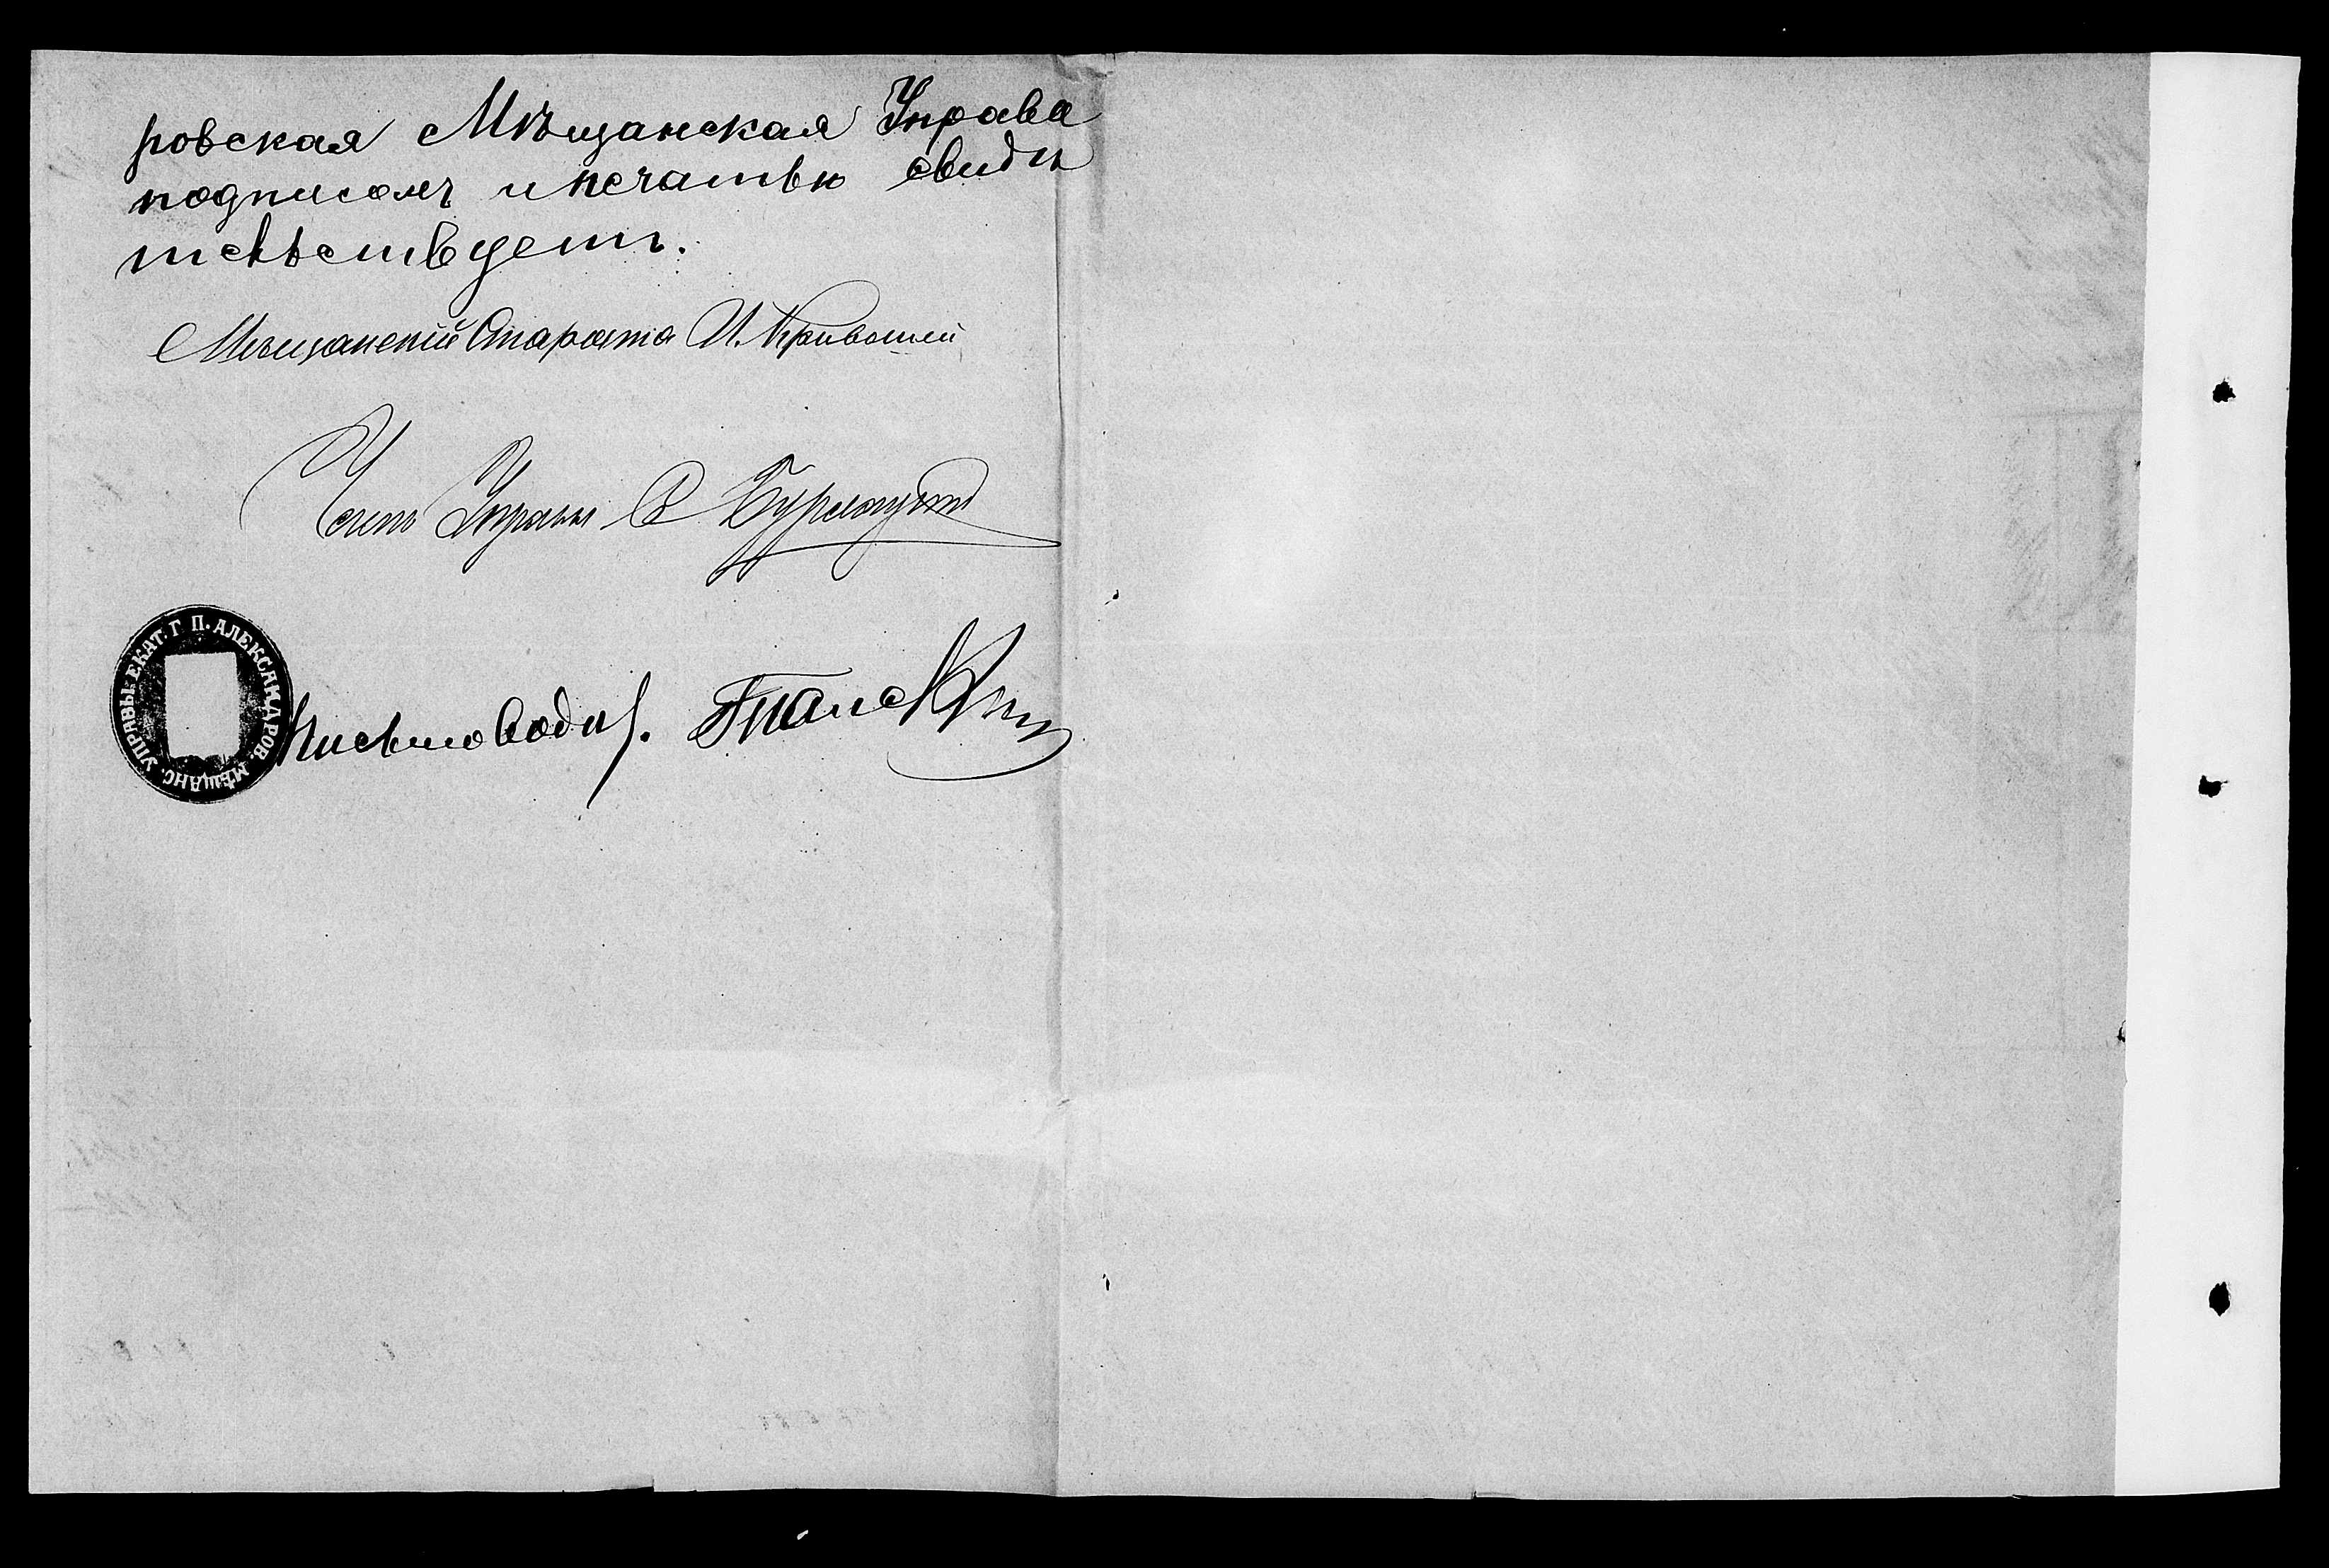 ровская Мѣщанская Управа
подписомъ и печатью свидѣ
тельствуетъ.
Мѣщанскій Староста И. Кривошей
Членъ Управы
ЕКАТ. Г. П. АЛЕКСАНДРОВ. МѢЩАНС. УПРАВЫ
Письмовод.